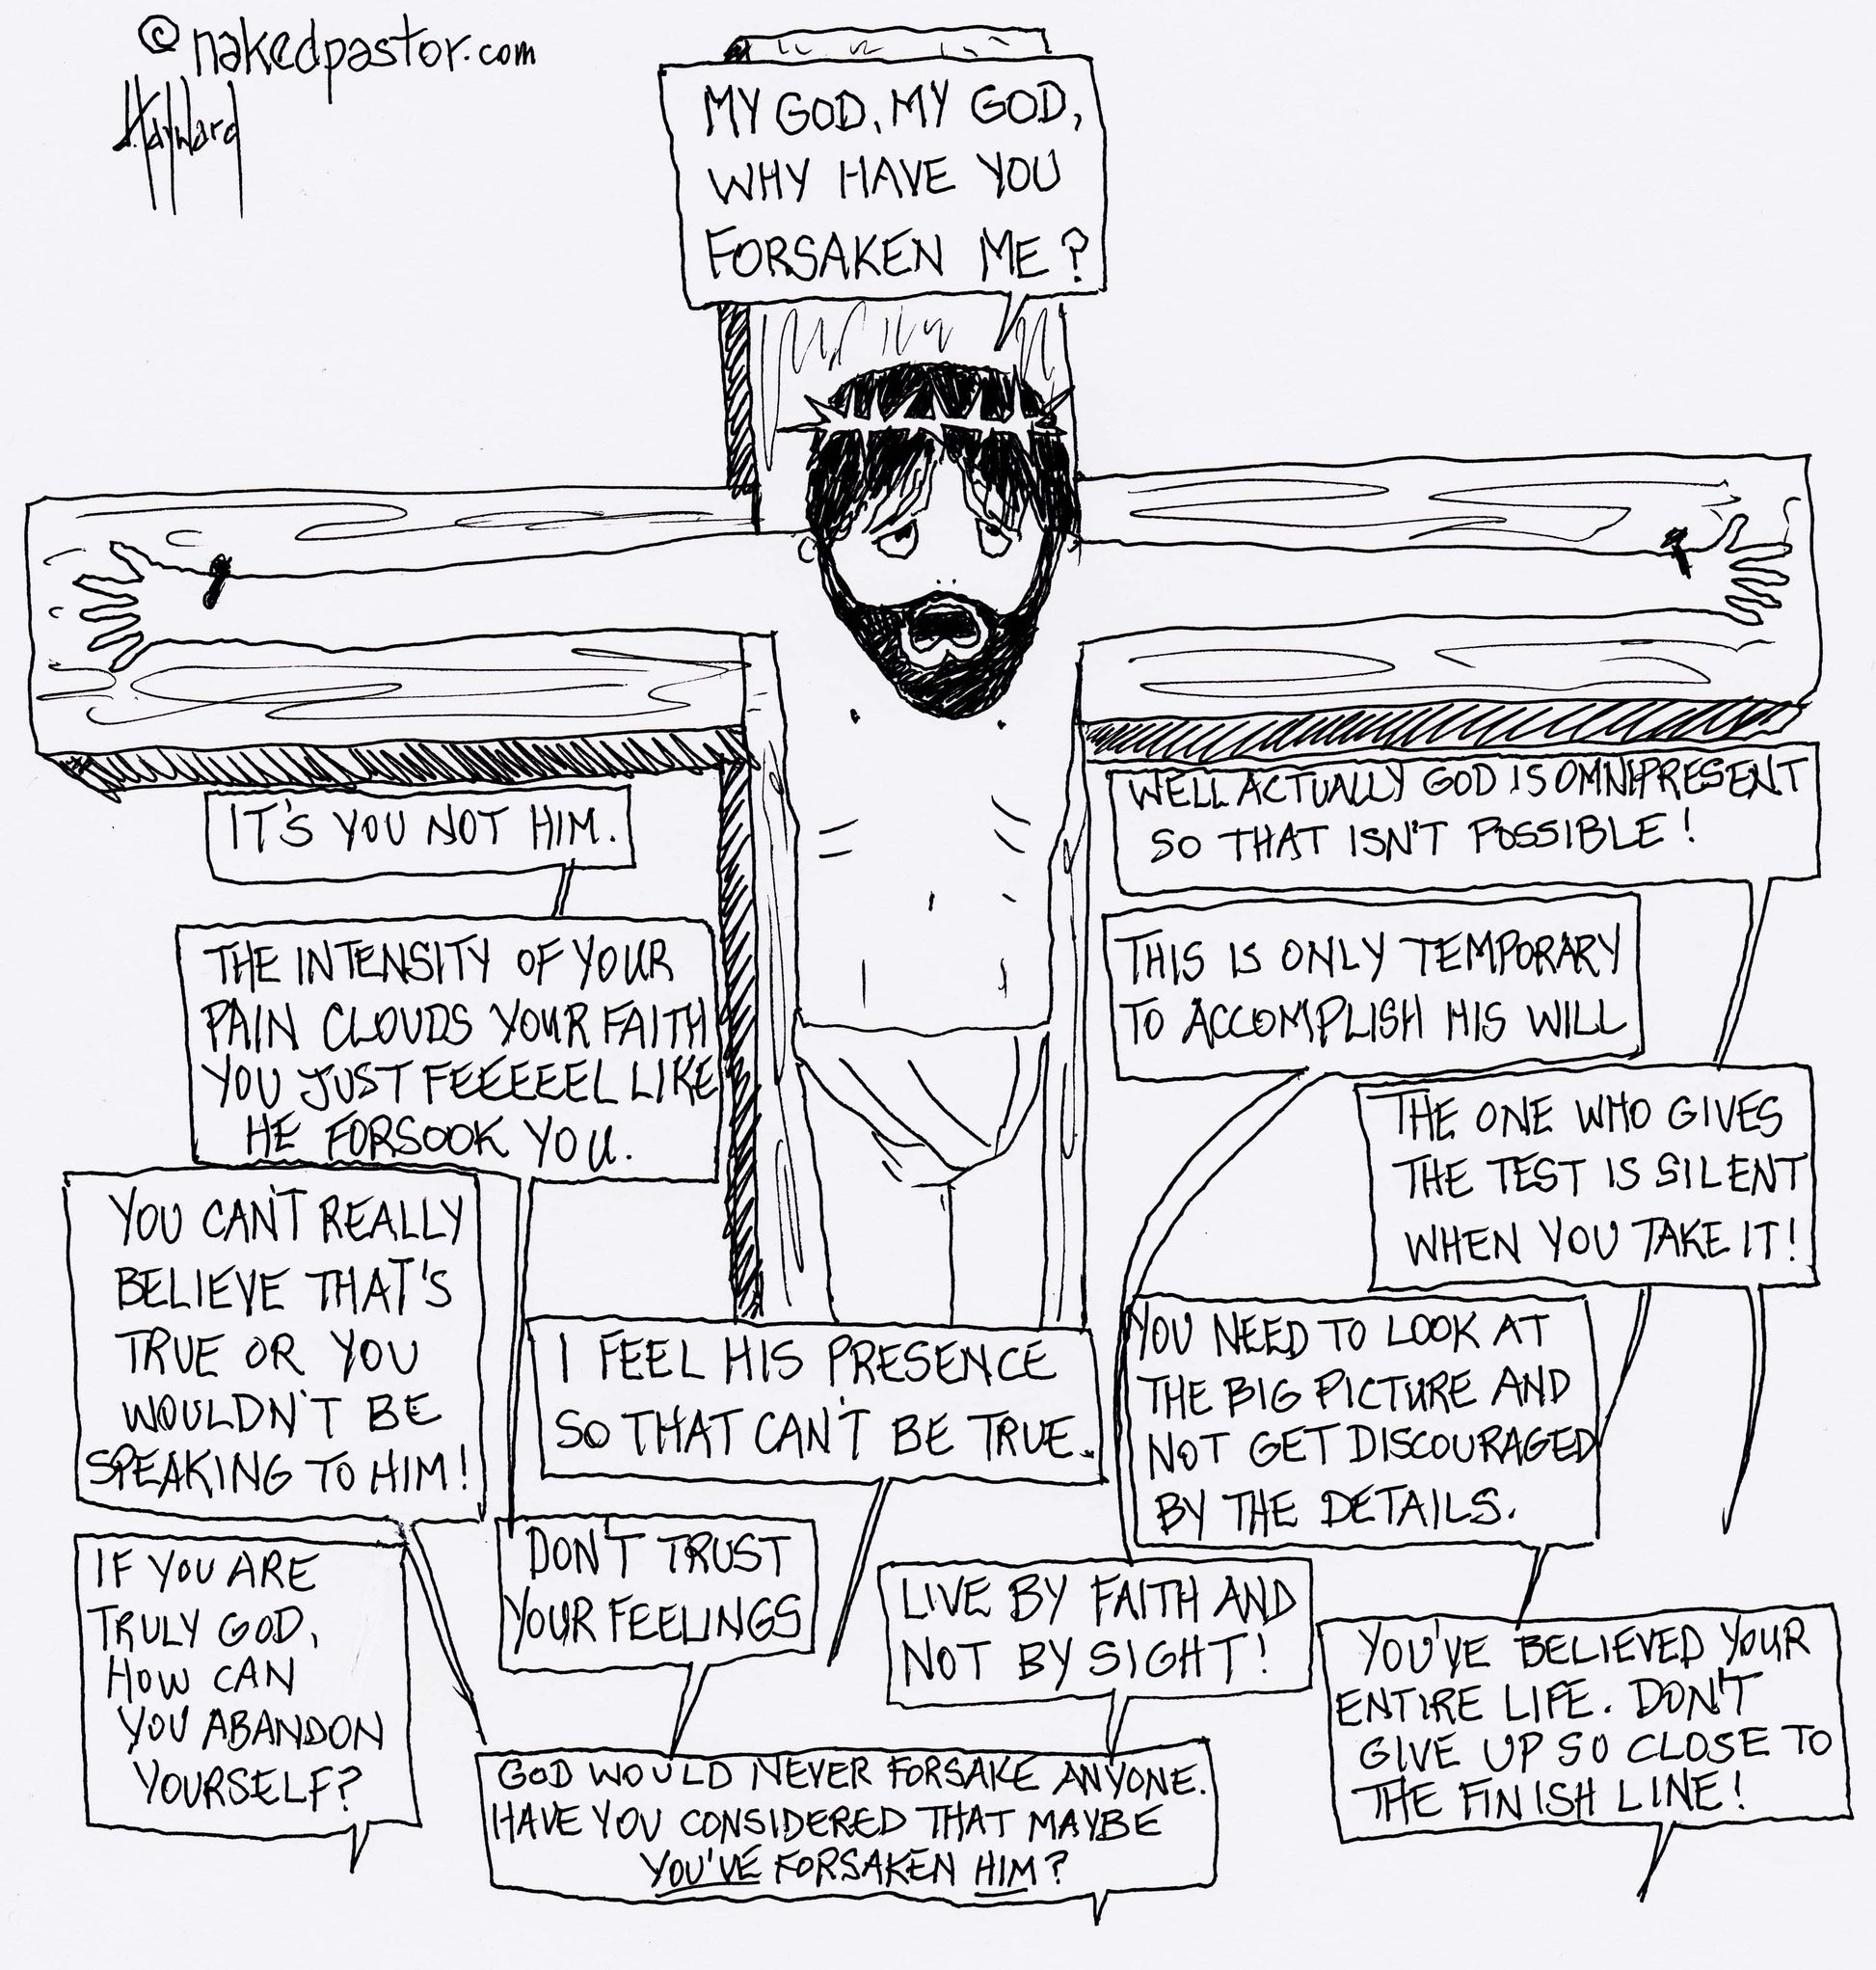 © nakedpastor.com
Hayward
MY GOD, MY GOD,
WHY HAVE YOU
FORSAKEN ME?
IT'S YOU NOT HIM.
WELL ACTUALLY GOD IS OMNIPRESENT
SO THAT ISN'T POSSIBLE!
THE INTENSITY OF YOUR
PAIN CLOUDS YOUR FAITH
YOU JUST FEEEEEL LIKE
HE FORSOOK YOU.
THIS IS ONLY TEMPORARY
TO ACCOMPLISH HIS WILL
THE ONE WHO GIVES
THE TEST IS SILENT
WHEN YOU TAKE IT!
YOU CAN'T REALLY
BELIEVE THAT'S
TRUE OR YOU
WOULDN'T BE
SPEAKING TO HIM!
I FEEL HIS PRESENCE
SO THAT CAN'T BE TRUE.
YOU NEED TO LOOK AT
THE BIG PICTURE AND
NOT GET DISCOURAGED
BY THE DETAILS.
IF YOU ARE
TRULY GOD,
HOW CAN
YOU ABANDON
YOURSELF?
DON'T TRUST
YOUR FEELINGS
LIVE BY FAITH AND
NOT BY SIGHT!
YOU'VE BELIEVED YOUR
ENTIRE LIFE. DON'T
GIVE UP SO CLOSE TO
THE FINISH LINE!
GOD WOULD NEVER FORSAKE ANYONE.
HAVE YOU CONSIDERED THAT MAYBE
YOU'VE FORSAKEN HIM?